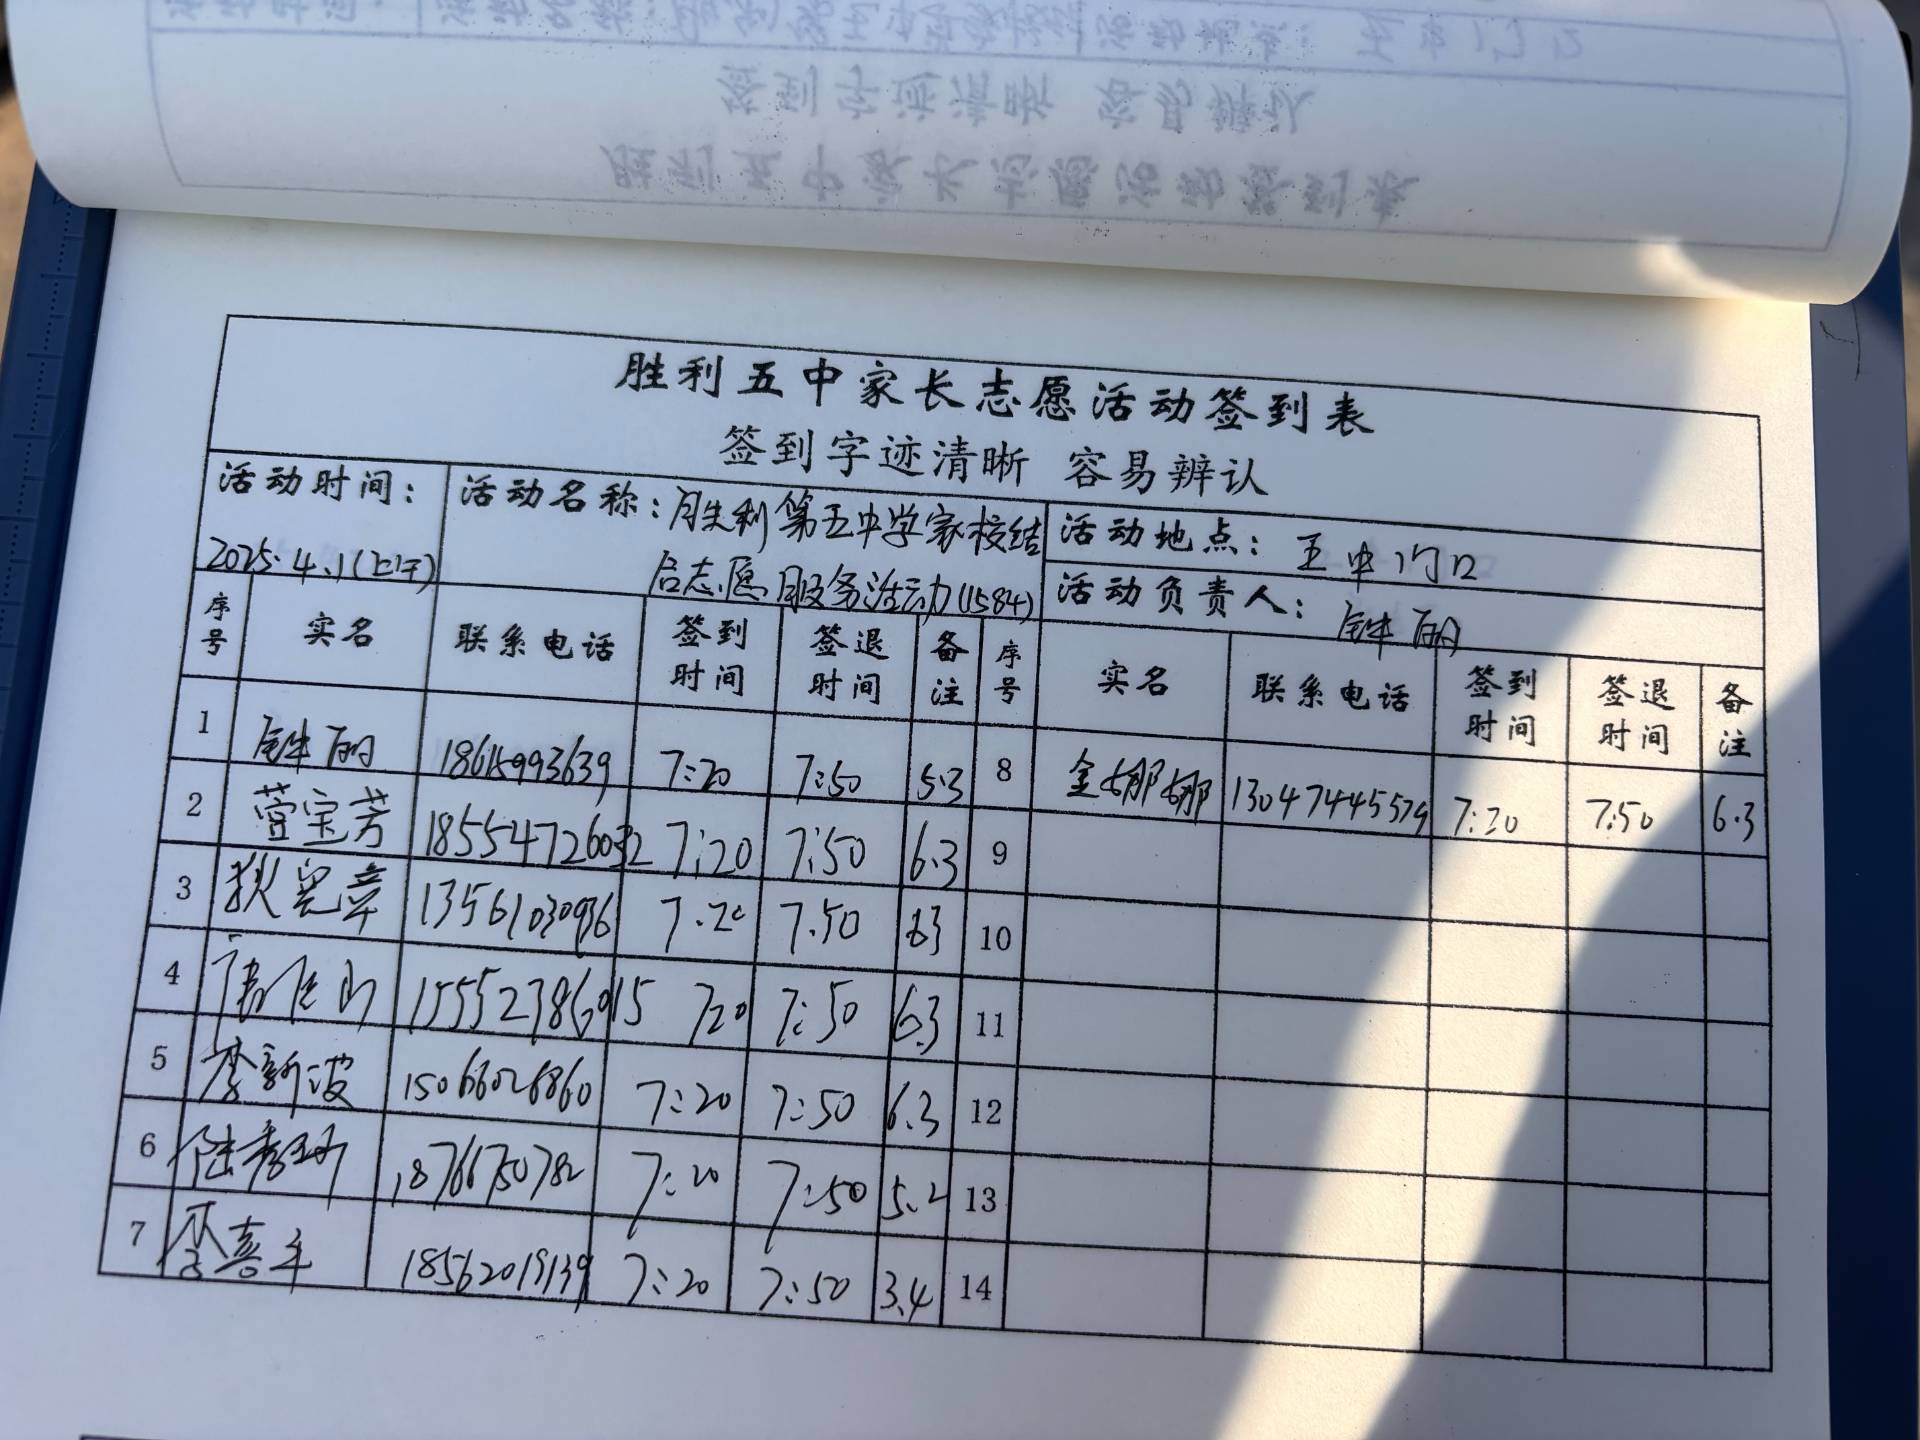 胜利五中家长志愿活动签到表
签到字迹清晰 容易辨认
活动时间： 活动名称：胜利第五中学家校结 活动地点：五中门口
2025.4.1(上午) 合志愿服务活动(1584) 活动负责人：钟丽
序号 实名 联系电话 签到时间 签退时间 备注 序号 实名 联系电话 签到时间 签退时间 备注
1 钟丽 18615993639 7:20 7:50 5.3 8 金娜娜 13047445579 7:20 7:50 6.3
2 宝芳 18554726032 7:20 7:50 6.3 9
3 狄 章 13561030936 7:20 7:50 6.3 10
4 15552786915 7:20 7:50 6.3 11
5 李新波 15066026860 7:20 7:50 6.3 12
6 陆秀 18766750782 7:20 7:50 5.2 13
7 李喜 18562019139 7:20 7:50 3.4 14